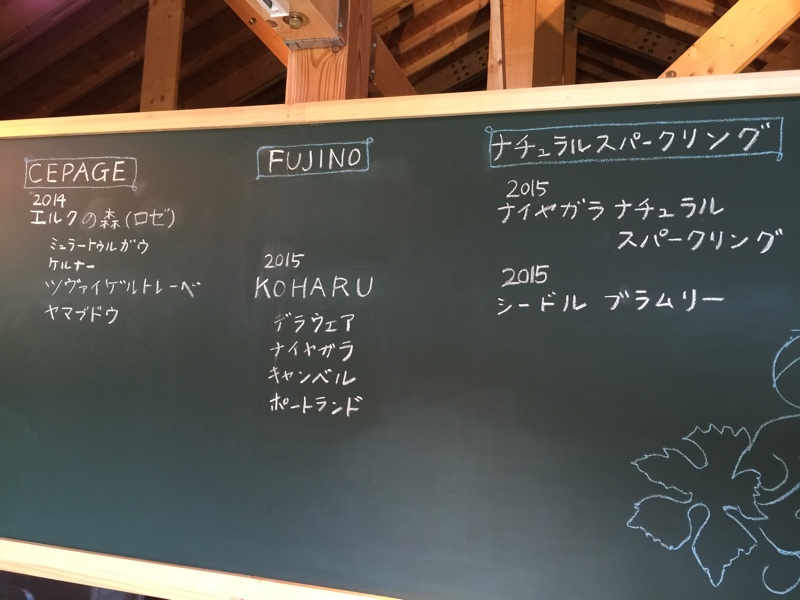 CEPAGE
2014
エルクの森(ロゼ)
ミュラートゥルガウ
ケルナー
ツヴァイゲルトレーベ
ヤマブドウ
FUJINO
2015
KOHARU
デラウェア
ナイヤガラ
キャンベル
ポートランド
ナチュラルスパークリング
2015
ナイヤガラ ナチュラル
スパークリング
2015
シードル ブラムリー